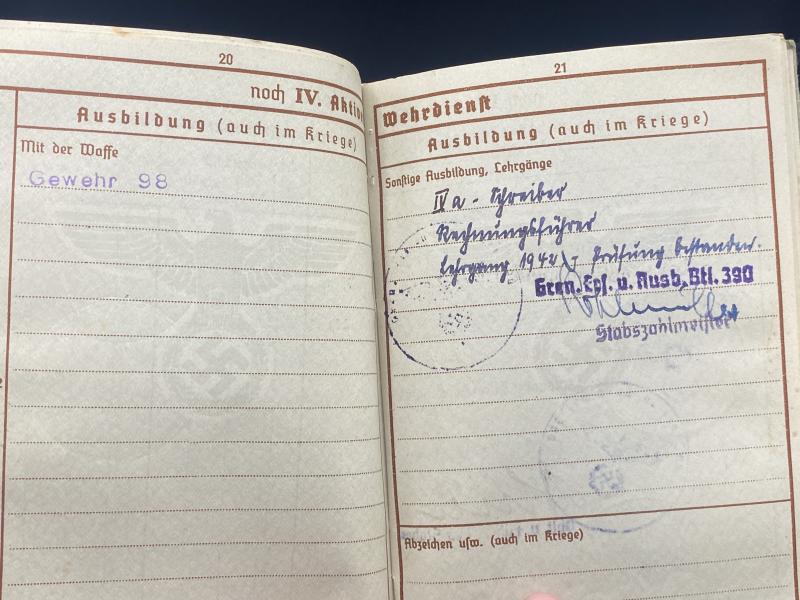 20
noch IV. Aktiv
Ausbildung (auch im Kriege)
Mit der Waffe
Gewehr 98
21
Wehrdienst
Ausbildung (auch im Kriege)
Sonstige Ausbildung, Lehrgänge
IV a - Schreiber
Rechnungsführer
Lehrgang 1942 - Prüfung bestanden.
Gren. Ers. u. Ausb. Btl. 390
Stabszahlmeister
Abzeichen usw. (auch im Kriege)